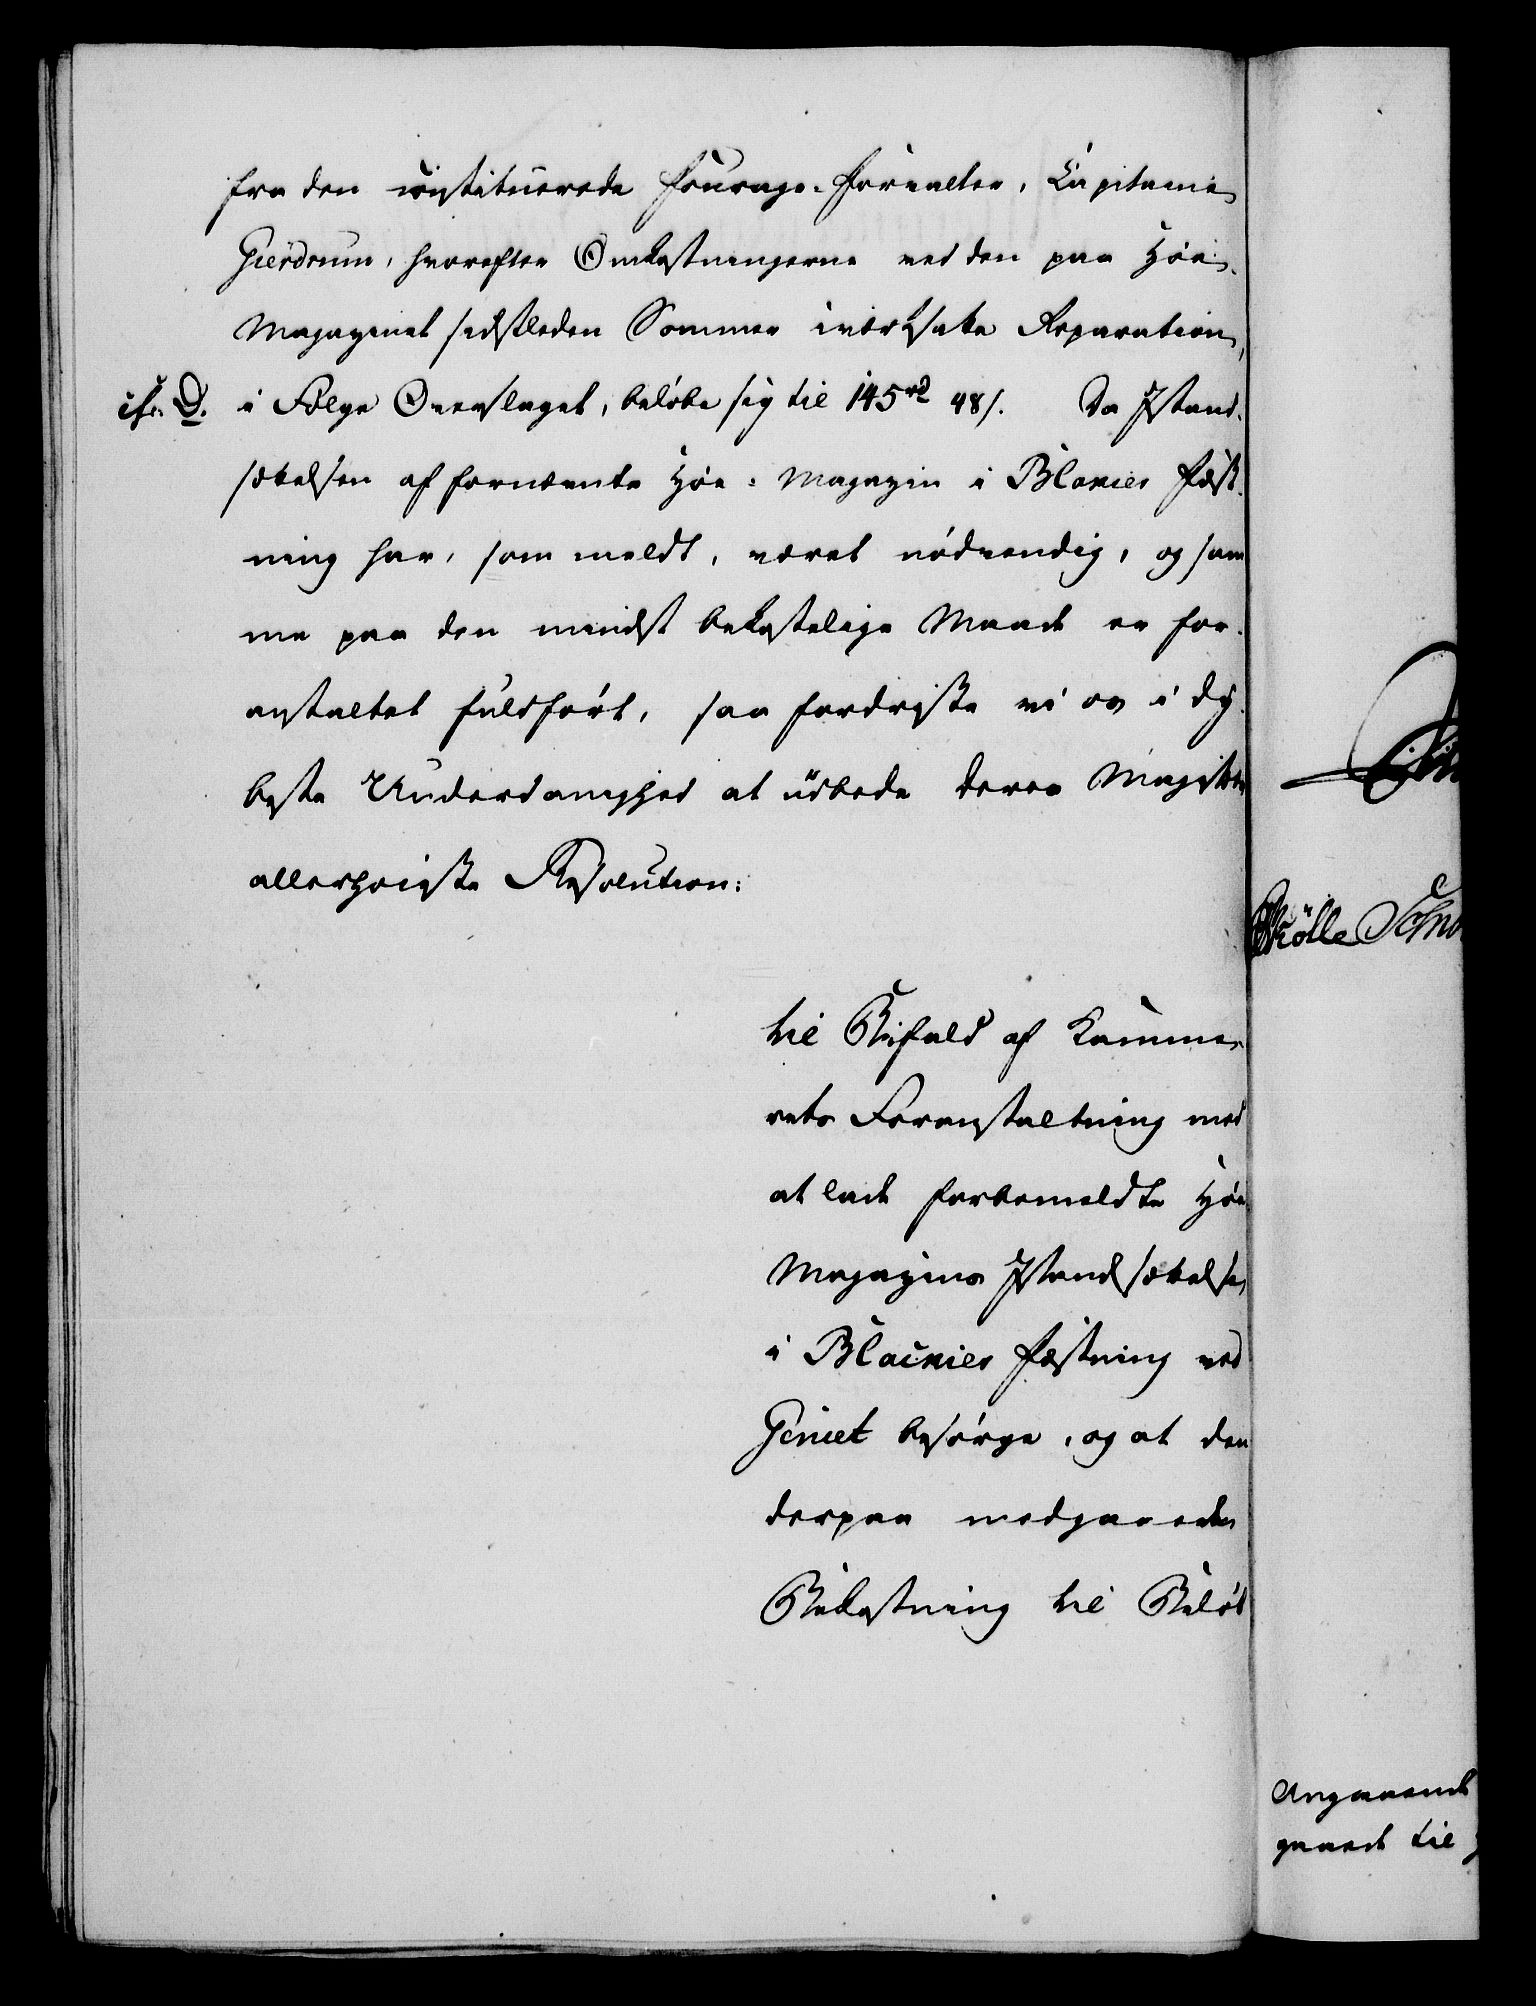 fra den constituerede Fourage-Forvalter, Capitaine
Gierdrum, hvorefter Omkostningerne ved den paa Høe-
Magazinet sidstleden Sommer iværksatte Reparation,
cfr. D. i Følge Overslaget, beløbe sig til 145 rd 48 s. Da Istand-
sættelsen af fornævnte Høe-Magazin i Blaxier Fæst-
ning har, som meldt, været nødvendig, og sam-
me paa den mindst bekostelige Maade er for-
anstaltet fuldført, saa fordriste vi os i dy-
beste Underdanighed at udbede Deres Majestets
allerhøieste Resolution:
til Bifald af Kamme-
rets Foranstaltning med
at lade forbemeldte Høe
Magazins Istandsættelse
i Blaxier Fæstning ved
Geniet besørge, og at den
derpaa medgaaede
Bekostning til Beløb
Skølle Schn
Angaaende
gaard til